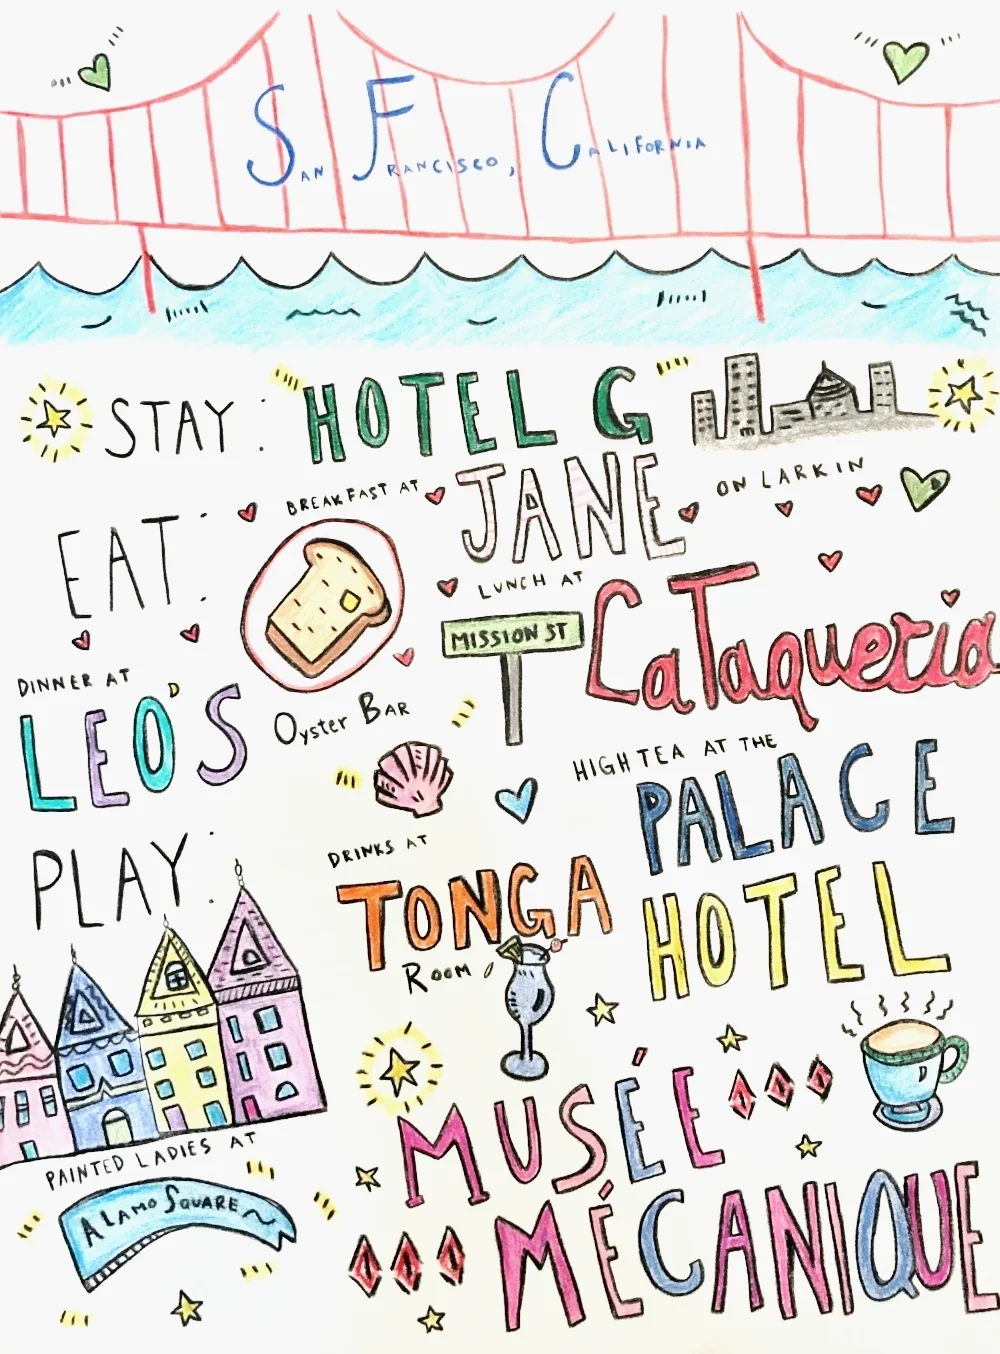 SAN FRANCISCO, CALIFORNIA
STAY: HOTEL G
EAT:
BREAKFAST AT
JANE
ON LARKIN
LUNCH AT
MISSION ST
La Taqueria
DINNER AT
LEO'S
Oyster Bar
HIGH TEA AT THE
PALACE
HOTEL
PLAY:
DRINKS AT
TONGA
ROOM
PAINTED LADIES AT
ALAMO SQUARE
MUSÉE
MÉCANIQUE